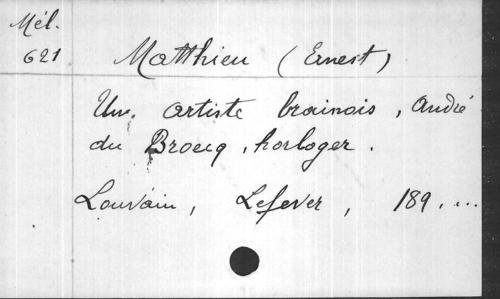 Mél.
621
Matthieu (Ernest)
Un. artiste brainois, André
du Broecq, horloger.
Louvain, Lefever, 189. ...